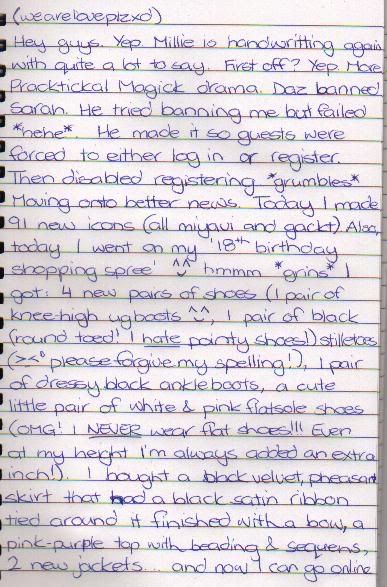 (weareloveplzxd)
Hey guys. Yep Millie is handwritting again
with quite a lot to say. First off? Yep More
Pracktickal Magick drama. Daz banned
Sarah. He tried banning me but failed
*hehe*. He made it so guests were
forced to either log in or register.
Then disabled registering *grumbles*
Moving onto better news. Today I made
91 new icons (all miyavi and gackt) Also,
today I went on my '18th birthday
shopping spree' ^^ hmmm *grins* I
got: 4 new pairs of shoes (1 pair of
knee-high ugboots ^^, 1 pair of black
(round toed! I hate pointy shoes!) stilletoes
(>.<° please forgive my spelling!), 1 pair
of dressy black ankleboots, a cute
little pair of white & pink flatsole shoes
(OMG! I NEVER wear flat shoes!!! Even
at my height I'm always added an extra
inch!). I bought a black velvet, pheasant
skirt that had a black satin ribbon
tied around it finished with a bow, a
pink-purple top with beading & sequens,
2 new jackets... and now I can go online